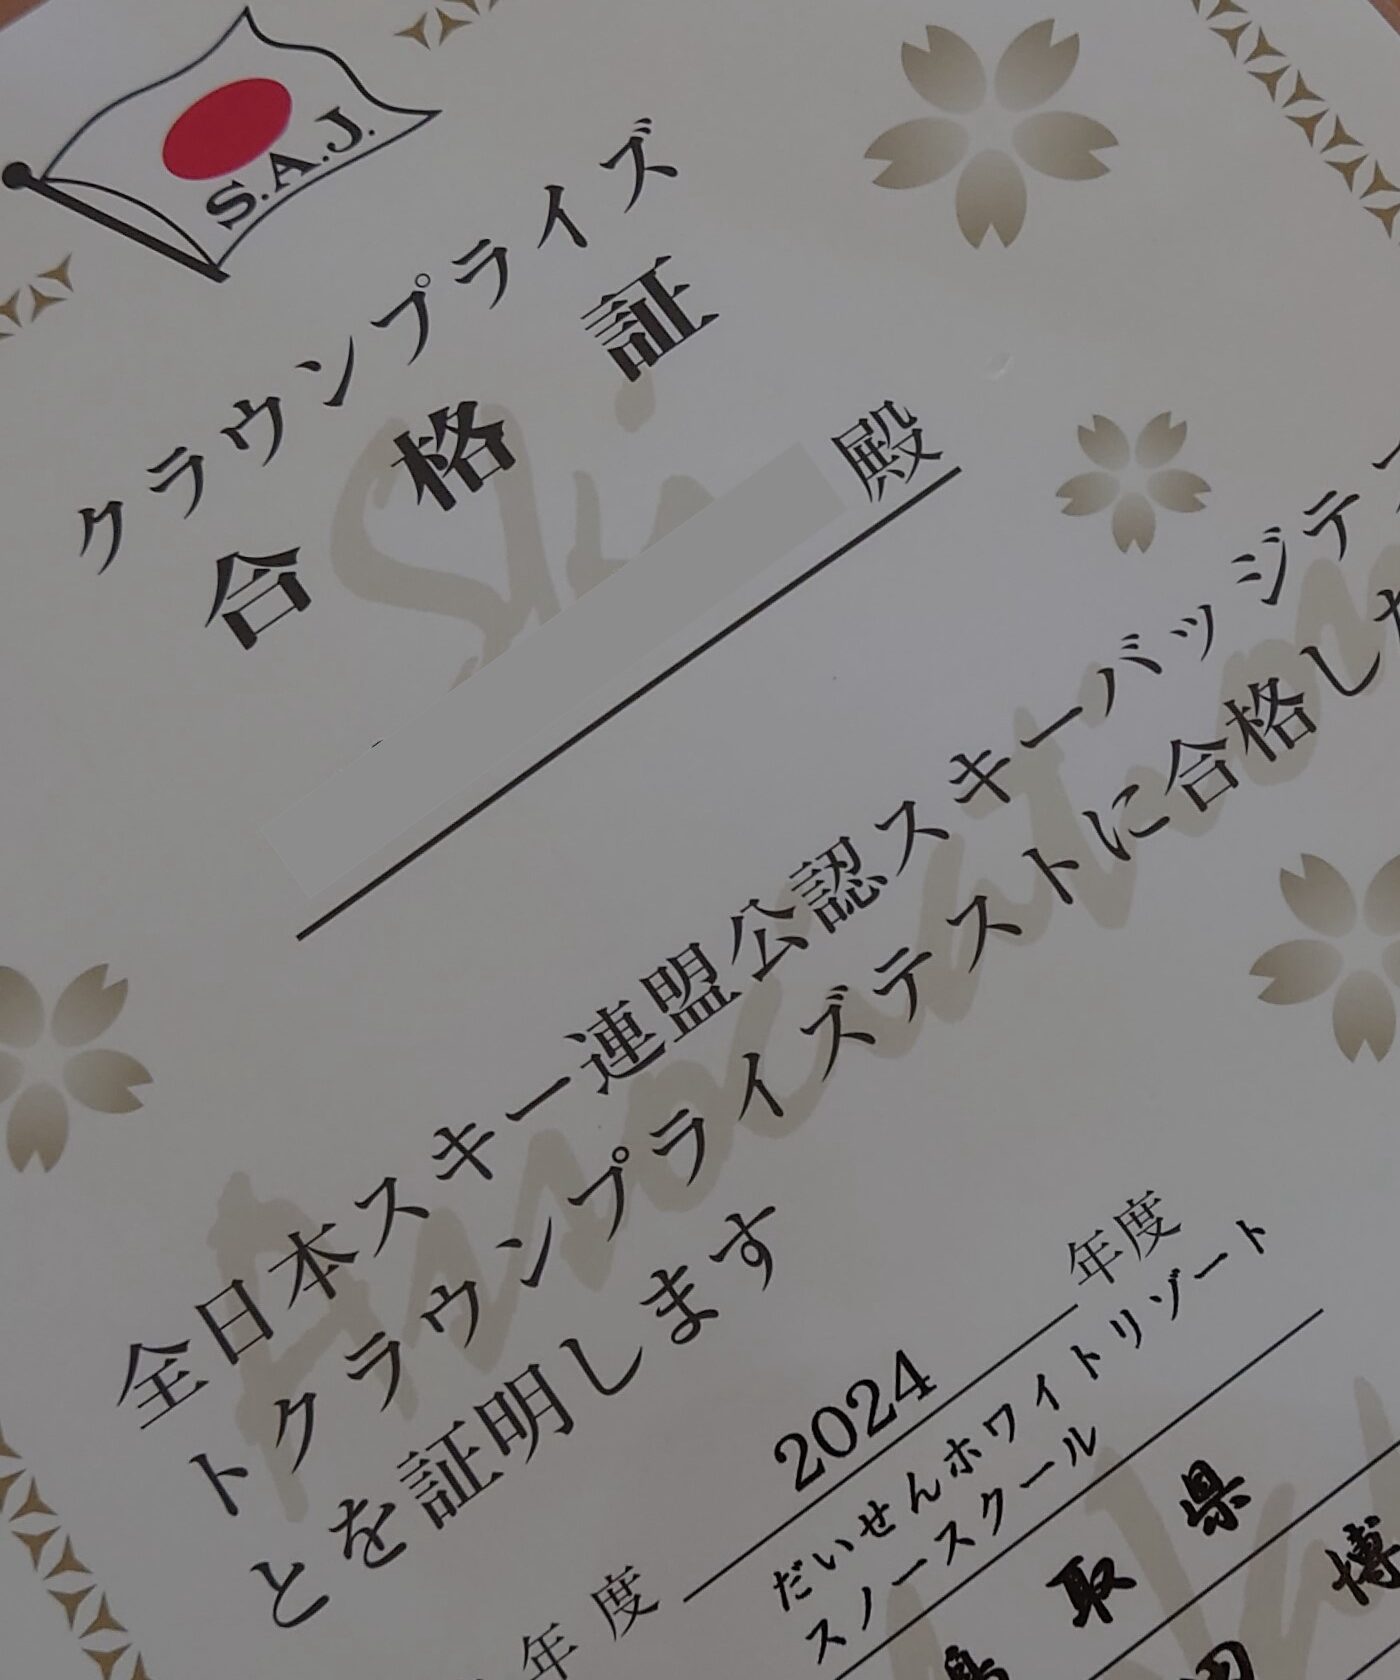 S.A.J.
クラウンプライズ
合格証
殿
全日本スキー連盟公認スキーバッジテス
トクラウンプライズテストに合格したこ
とを証明します
年度 2024 年度
だいせんホワイトリゾート
スノースクール
鳥取県
博
Ski
Association